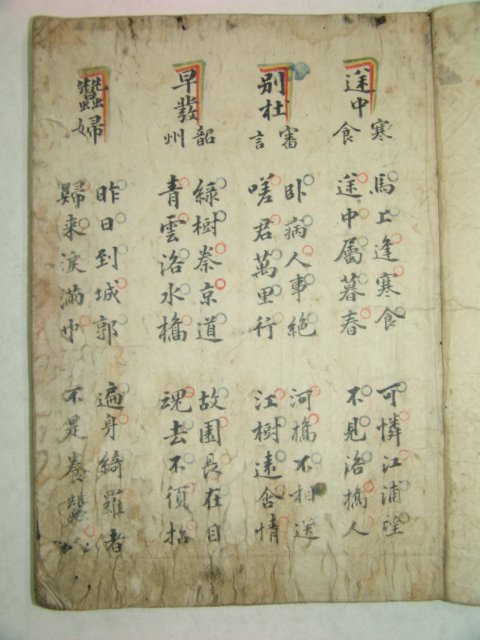 途中寒食
馬上逢寒食
途中屬暮春
可憐江浦望
不見洛橋人
別杜審言
卧病人事絶
嗟君萬里行
河橋不相送
江樹遠含情
早發韶州
綠樹秦京道
青雲洛水橋
故園長在目
魂去不須招
蠶婦
昨日到城郭
歸來淚滿巾
遍身綺羅者
不是養蠶